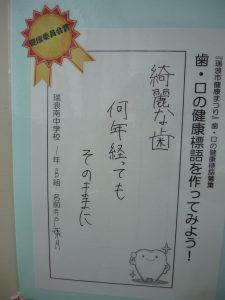 『瑞浪市健康まつり』歯・口の健康標語募集
歯・口の健康標語を作ってみよう！
綺麗な歯
何年経っても
そのままに
瑞浪南中学校 1年 B組 名前
健康委員会賞